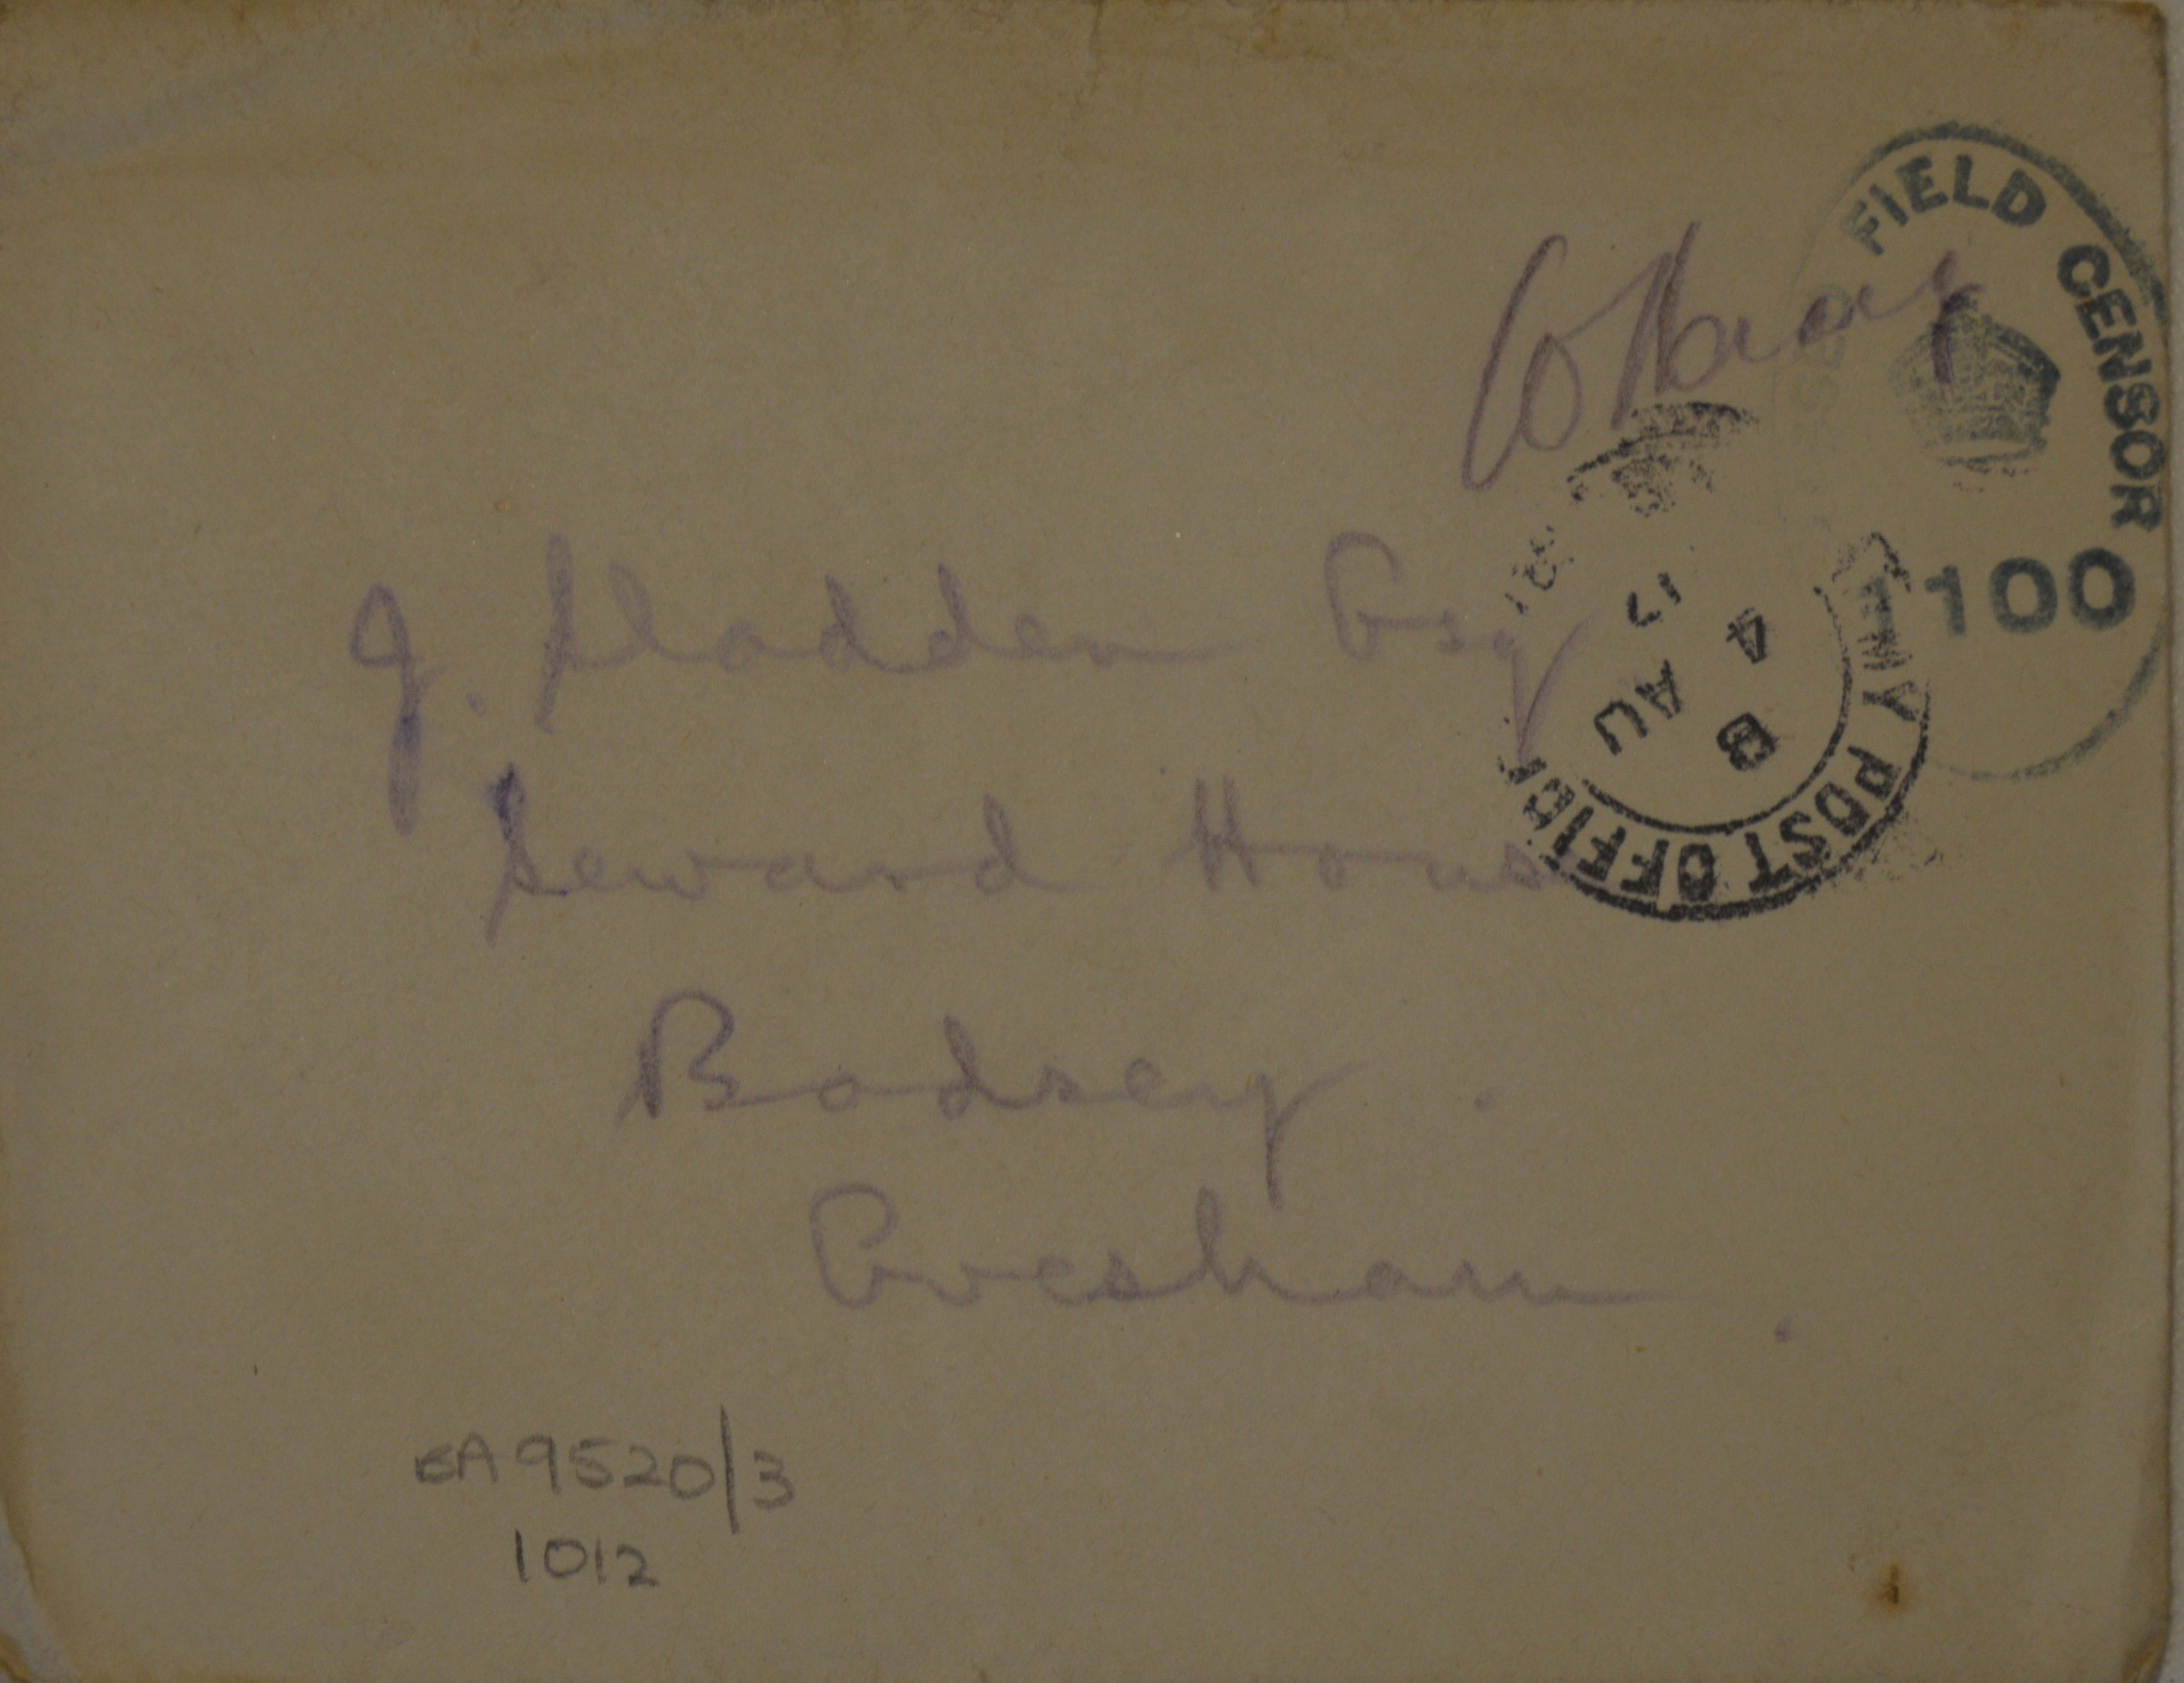 FIELD CENSOR
1100
ARMY POST OFFICE
B
4 AU
17
J. Sladden Esq
Seward House
Badsey.
Evesham.
EA 9520/3
1012